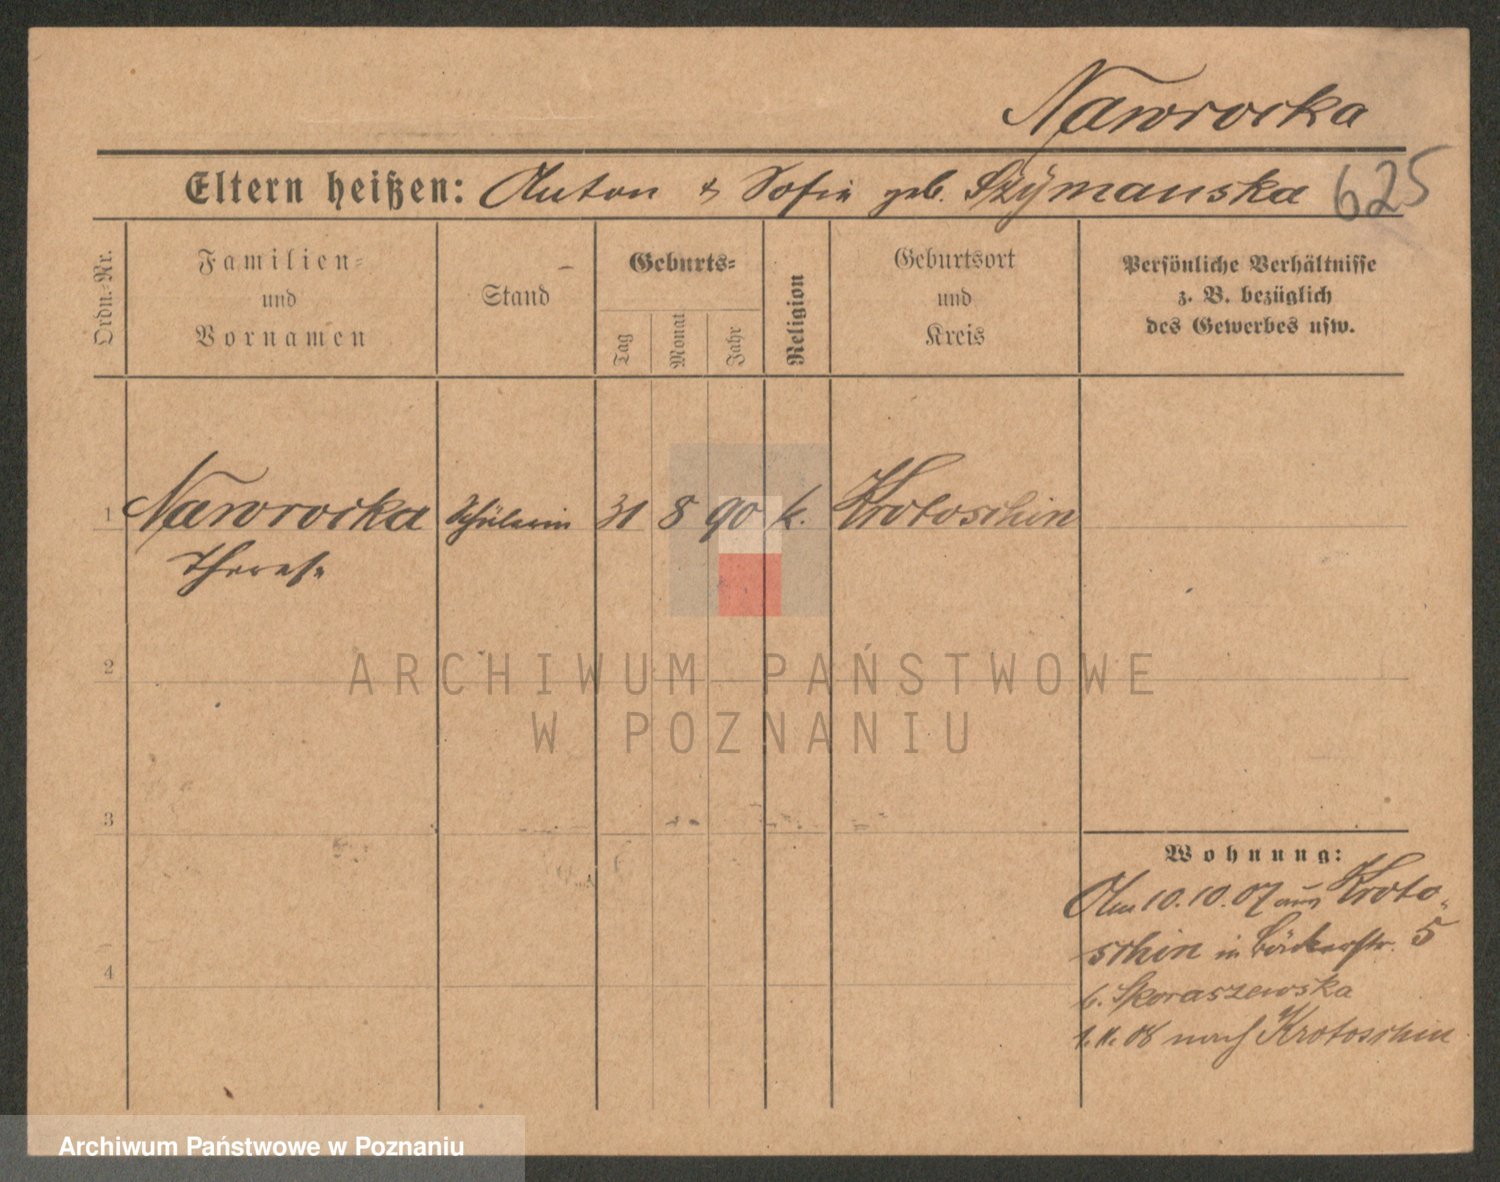 Nawrocka
Eltern heißen: Anton & Sofie geb. Szÿmanska 625
Ordn.-Nr.
Familien-
und
Vornamen
Stand
Geburts-
Tag
Monat
Jahr
Religion
Geburtsort
und
Kreis
Persönliche Verhältnisse
z. B. bezüglich
des Gewerbes usw.
1 Nawrocka Schülerin 31 8 90 k. Krotoschin
Therese
2
ARCHIWUM PAŃSTWOWE
W POZNANIU
3
Wohnung:
Am 10.10.07 aus Kroto-
schin in Bäckerstr. 5
b. Skoraszewska
4
08 nach Krotoschin
Archiwum Państwowe w Poznaniu